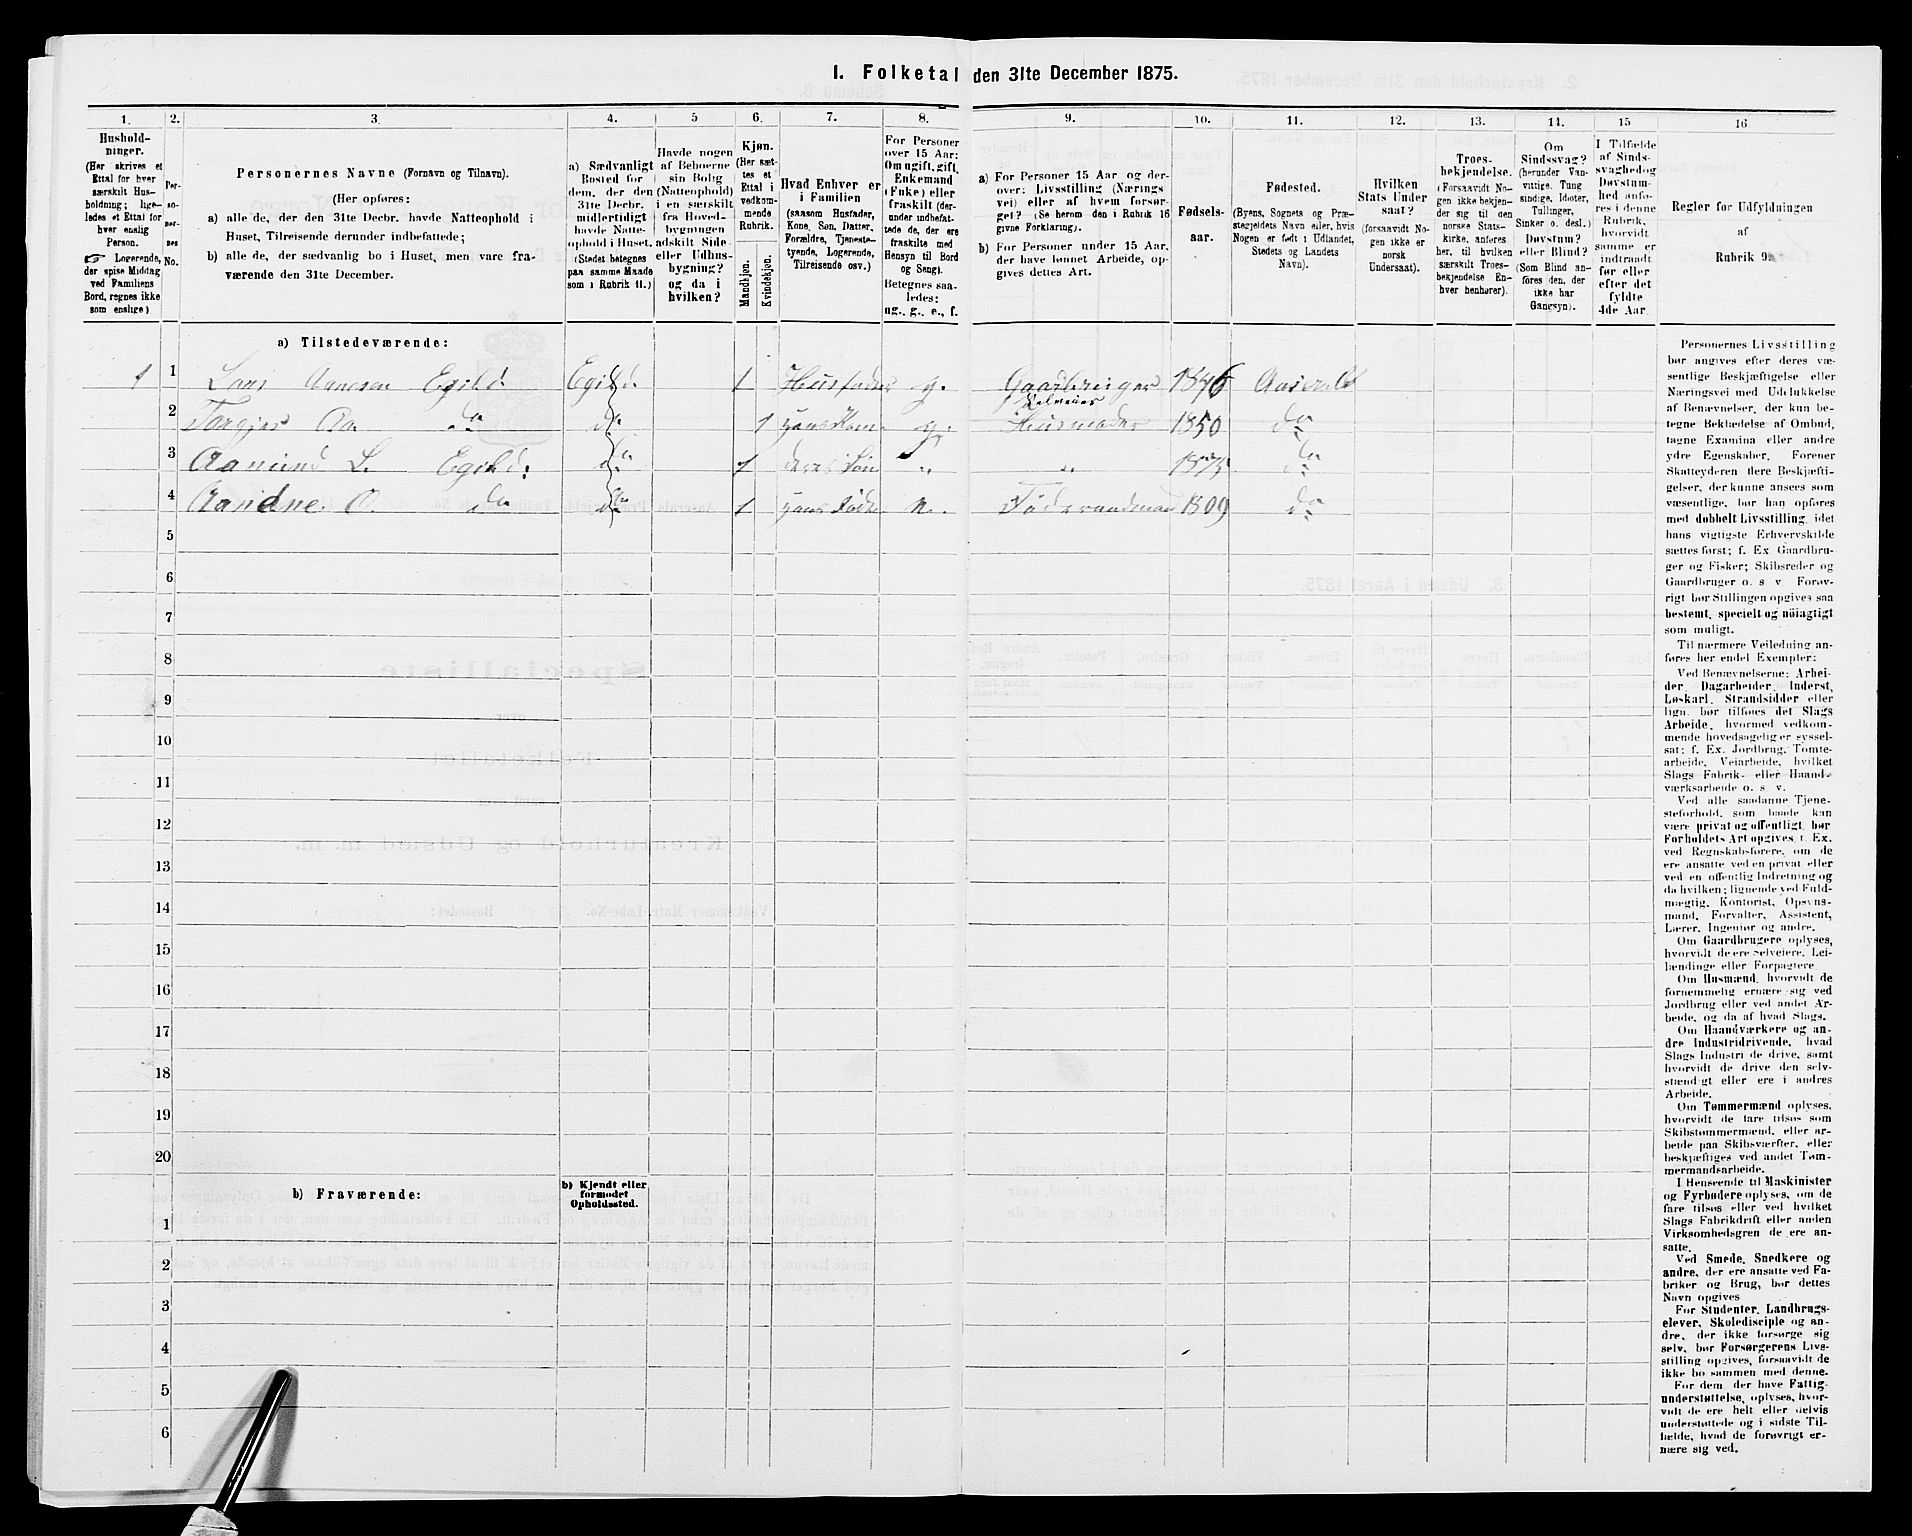 I. Folketal den 31te December 1875.
1. 2. 3. 4. 5 6. 7. 8. 9. 10. 11. 12. 13. 14. 15 16
Hushold-
ninger.
(Her skrives et
Ettal for hver
særskilt Hus-
holdning; lige-
ledes et Ettal for
hver enslig
Person.
Logerende,
der spise Middag
ved Familiens
Bord, regnes ikke
som enslige)
Per-
so-
ner-
nes
No.
Personernes Navne (Fornavn og Tilnavn).
(Her opføres:
a) alle de, der den 31te Decbr. havde Natteophold i
Huset, Tilreisende derunder indbefattede;
b) alle de, der sædvanlig bo i Huset, men vare fra-
værende den 31te December.
a) Sædvanligt
Bosted for
dem, der den
31te Decbr.
midlertidigt
havde Natte-
ophold i Huset.
(Stedet betegnes
paa samme Maade
som i Rubrik 11.)
Havde nogen
af Beboerne
sin Bolig
(Natteophold)
i en særskilt
fra Hoved-
bygningen
adskilt Side-
eller Udhus-
bygning?
og da i
hvilken?
Kjøn.
(Her sæt-
tes et
Ettal i
vedkom-
mende
Rubrik.
Mandkjøn.
Kvindekjøn.
Hvad Enhver er
i Familien
(saasom Husfader,
Kone, Søn, Datter,
Forældre, Tjeneste-
tyende, Logerende,
Tilreisende osv.)
For Personer
over 15 Aar:
Om ugift, gift,
Enkemand
(Enke) eller
fraskilt (der-
under indbefat-
tede de, der ere
fraskilte med
Hensyn til Bord
og Seng).
Betegnes saa-
ledes:
ug., g., e., f.
a) For Personer 15 Aar og der-
over: Livsstilling (Nærings
vei) eller af hvem forsør-
get? (Se herom den i Rubrik 16
givne Forklaring).
b) For Personer under 15 Aar,
der have lønnet Arbeide, op-
gives dettes Art.
Fødsels-
aar.
Fødested.
(Byens, Sognets og Præ-
stegjeldets Navn eller, hvis
Nogen er født i Udlandet,
Stedets og Landets
Navn).
Hvilken
Stats Under
saat?
(forsaavidt No-
gen ikke er
norsk
Undersaat).
Troes-
bekjendelse.
(Forsaavidt No-
gen ikke bekjen-
der sig til den
norske Stats-
kirke, anføres
her, til hvilken
særskilt Troes-
bekjendelse En-
hver henhører).
Om
Sindssvag?
(herunder Van-
vittige, Tung
sindige, Idioter,
Tullinger,
Sinker o. desl.)
Døvstum?
eller Blind?
(Som Blind an-
føres den, der
ikke har
Gangsyn).
I Tilfælde
af Sinds-
svaghed og
Døvstum-
hed anfø-
res i denne
Rubrik,
hvorvidt
samme er
indtraadt
før eller
efter det
fyldte
4de Aar.
Regler for Udfyldningen
af
Rubrik 9.
a) Tilstedeværende:
1 1 Lars Aanesen Egild. Egild. 1 Husfader g. Gaardbruger Selveier 1846 Aaseral
2 Torgjer Aa. do do 1 hans Kone g. Husmoder 1850 do
3 Aamund L. Egild. do 1 deres Søn " " 1875 do
4 O. do do 1 hans 1809 do
5
6
7
8
9
10
11
12
13
14
15
16
17
18
19
20
b) Fraværende:
b) Kjendt eller
formodet
Opholdssted.
1
2
3
4
5
6
Personernes Livsstilling
bør angives efter deres væ-
sentlige Beskjæftigelse eller
Næringsvei med Udelukkelse
af Benævnelser, der kun be-
tegne Beklædelse af Ombud,
tagne Examina eller andre
ydre Egenskaber. Forener
Skatteyderen flere Beskjæfti-
gelser, der kunne ansees som
væsentlige, bør han opføres
med dobbelt Livsstilling, idet
hans vigtigste Erhvervskilde
sættes først; f. Ex Gaardbru-
ger og Fisker; Skibsreder og
Gaardbruger o. s v Forøv-
rigt bør Stillingen opgives saa
bestemt, specielt og nöiagtigt
som muligt.
Til nærmere Veiledning an-
føres her endel Exempler:
Ved Benævnelserne: Arbei-
der, Dagarbeider, Inderst,
Løskarl, Strandsidder eller
lign. bør tilføies det Slags
Arbeide, hvormed vedkom-
mende hovedsagelig er syssel-
sat; f. Ex. Jordbrug, Tomte-
arbeide, Veiarbeide, hvilket
Slags Fabrik- eller Haand-
værksarbeide o. s. v.
Ved alle saadanne Tjene-
steforhold, som baade kan
være privat og offentligt, bør
Forholdets Art opgives, f. Ex.
ved Regnskabsførere, om de
ere ansatte ved en privat eller
ved en offentlig Indretning og
da hvilken; lignende ved Fuld-
mægtig, Kontorist, Opsyns-
mand, Forvalter, Assistent,
Lærer, Ingeniør og andre.
Om Gaardbrugere oplyses,
hvorvidt de ere Selveiere, Lei-
lændinge eller Forpagtere
Om Husmænd, hvorvidt de
fornemmelig ernære sig ved
Jordbrug eller ved andet Ar-
beide, og da af hvad Slags.
Om Haandværkere og an-
dre Industridrivende, hvad
Slags Industri de drive, samt
hvorvidt de drive den selv-
stændigt eller ere i andres
Arbeide.
Om Tømmermænd oplyses,
hvorvidt de fare tilsøs som
Skibstømmermænd, eller ar-
beide paa Skibsværfter, eller
beskjæftiges ved andet Tøm-
mermandsarbeide.
I Henseende til Maskinister
og Fyrbødere oplyses, om de
fare tilsøs eller ved hvilket
Slags Fabrikdrift eller anden
Virksomhedsgren de ere an-
satte.
Ved Smede, Snedkere og
andre, der ere ansatte ved Fa-
briker og Brug, bør dettes
Navn opgives
For Studenter, Landbrugs-
elever, Skoledisciple og an-
dre, der ikke forsørge sig
selv, bør Forsørgerens Livs-
stilling opgives, forsaavidt de
ikke bo sammen med denne.
For dem, der have Fattig-
understøttelse, oplyses, hvor-
vidt de ere helt eller delvis
understøttede og i sidste Til-
fælde, hvad de forøvrigt er-
nære sig ved.